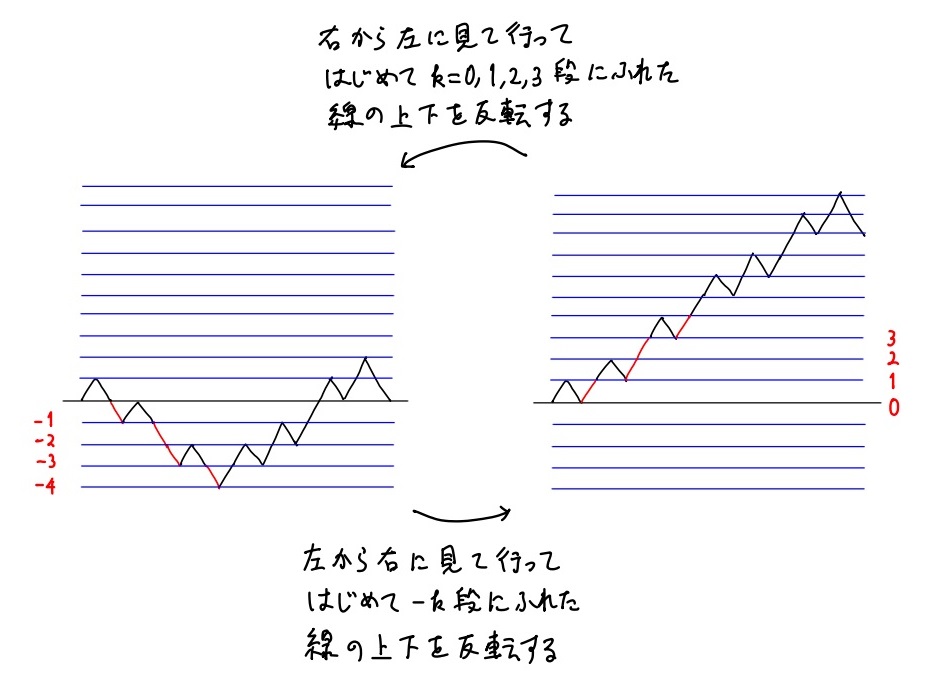 右から左に見て行って
はじめて k=0,1,2,3 段にふれた
線の上下を反転する
-1
-2
-3
-4
3
2
1
0
左から右に見て行って
はじめて -k 段にふれた
線の上下を反転する